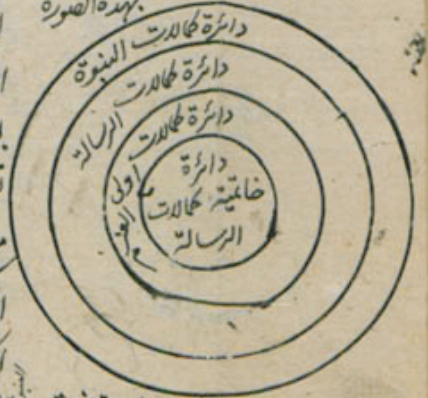 بهذه الصورة
دائرة كمالات النبوة
دائرة كمالات الرسالة
دائرة كمالات اولى العزم
دائرة
خاتمية كمالات
الرسالة